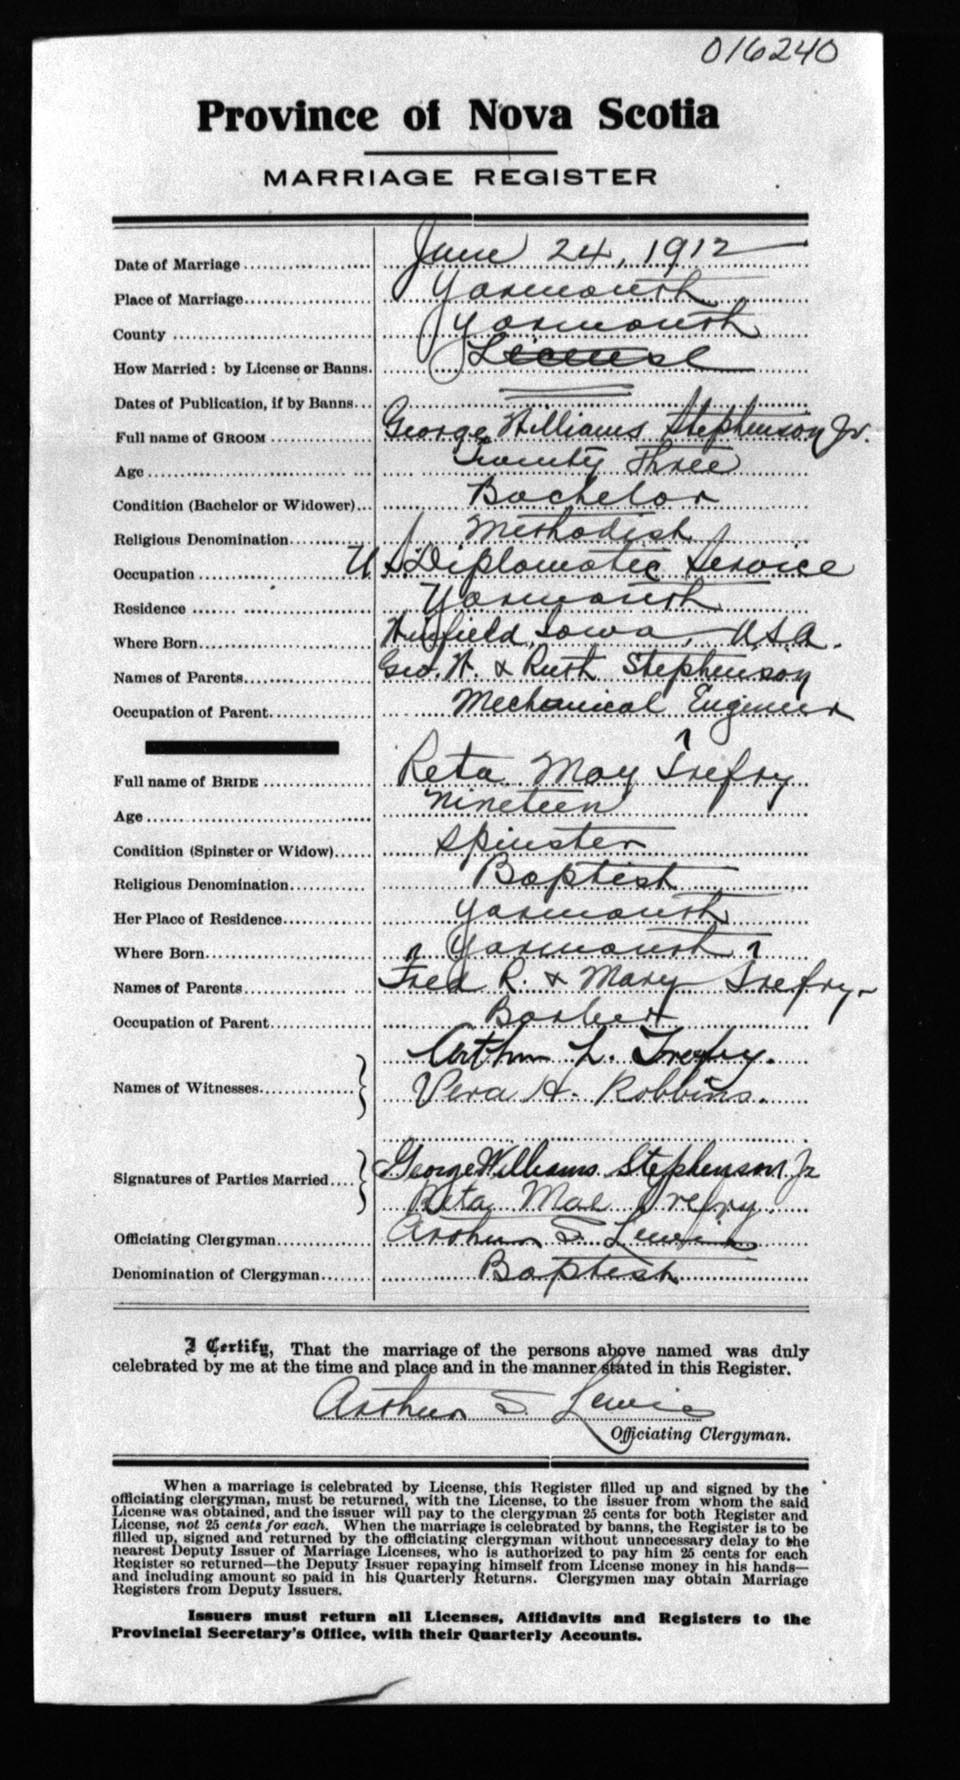 016240
Province of Nova Scotia
MARRIAGE REGISTER
Date of Marriage June 24, 1912
Place of Marriage Yarmouth
County Yarmouth
How Married : by License or Banns. License
Dates of Publication, if by Banns
Full name of GROOM George Williams Stephenson Jr.
Age Twenty Three
Condition (Bachelor or Widower) Bachelor
Religious Denomination Methodist
Occupation U.S. Diplomatic Service
Residence Yarmouth
Where Born Winfield, Iowa, U.S.A.
Names of Parents Geo. W. & Ruth Stephenson
Occupation of Parent Mechanical Engineer
Full name of BRIDE Reta May Trefry
Age Nineteen
Condition (Spinster or Widow) Spinster
Religious Denomination Baptist
Her Place of Residence Yarmouth
Where Born Yarmouth
Names of Parents Fred R. & Mary Trefry
Occupation of Parent Barber
Arthur L. Trefry.
Names of Witnesses Vera H. Robbins.
Signatures of Parties Married George Williams Stephenson Jr
Reta Mae Trefry.
Officiating Clergyman Arthur S. Lewis
Denomination of Clergyman Baptist
I Certify, That the marriage of the persons above named was duly
celebrated by me at the time and place and in the manner stated in this Register.
Arthur S. Lewis
Officiating Clergyman.
When a marriage is celebrated by License, this Register filled up and signed by the
officiating clergyman, must be returned, with the License, to the issuer from whom the said
License was obtained, and the issuer will pay to the clergyman 25 cents for both Register and
License, not 25 cents for each. When the marriage is celebrated by banns, the Register is to be
filled up, signed and returned by the officiating clergyman without unnecessary delay to the
nearest Deputy Issuer of Marriage Licenses, who is authorized to pay him 25 cents for each
Register so returned—the Deputy Issuer repaying himself from License money in his hands—
and including amount so paid in his Quarterly Returns. Clergymen may obtain Marriage
Registers from Deputy Issuers.
Issuers must return all Licenses, Affidavits and Registers to the
Provincial Secretary's Office, with their Quarterly Accounts.